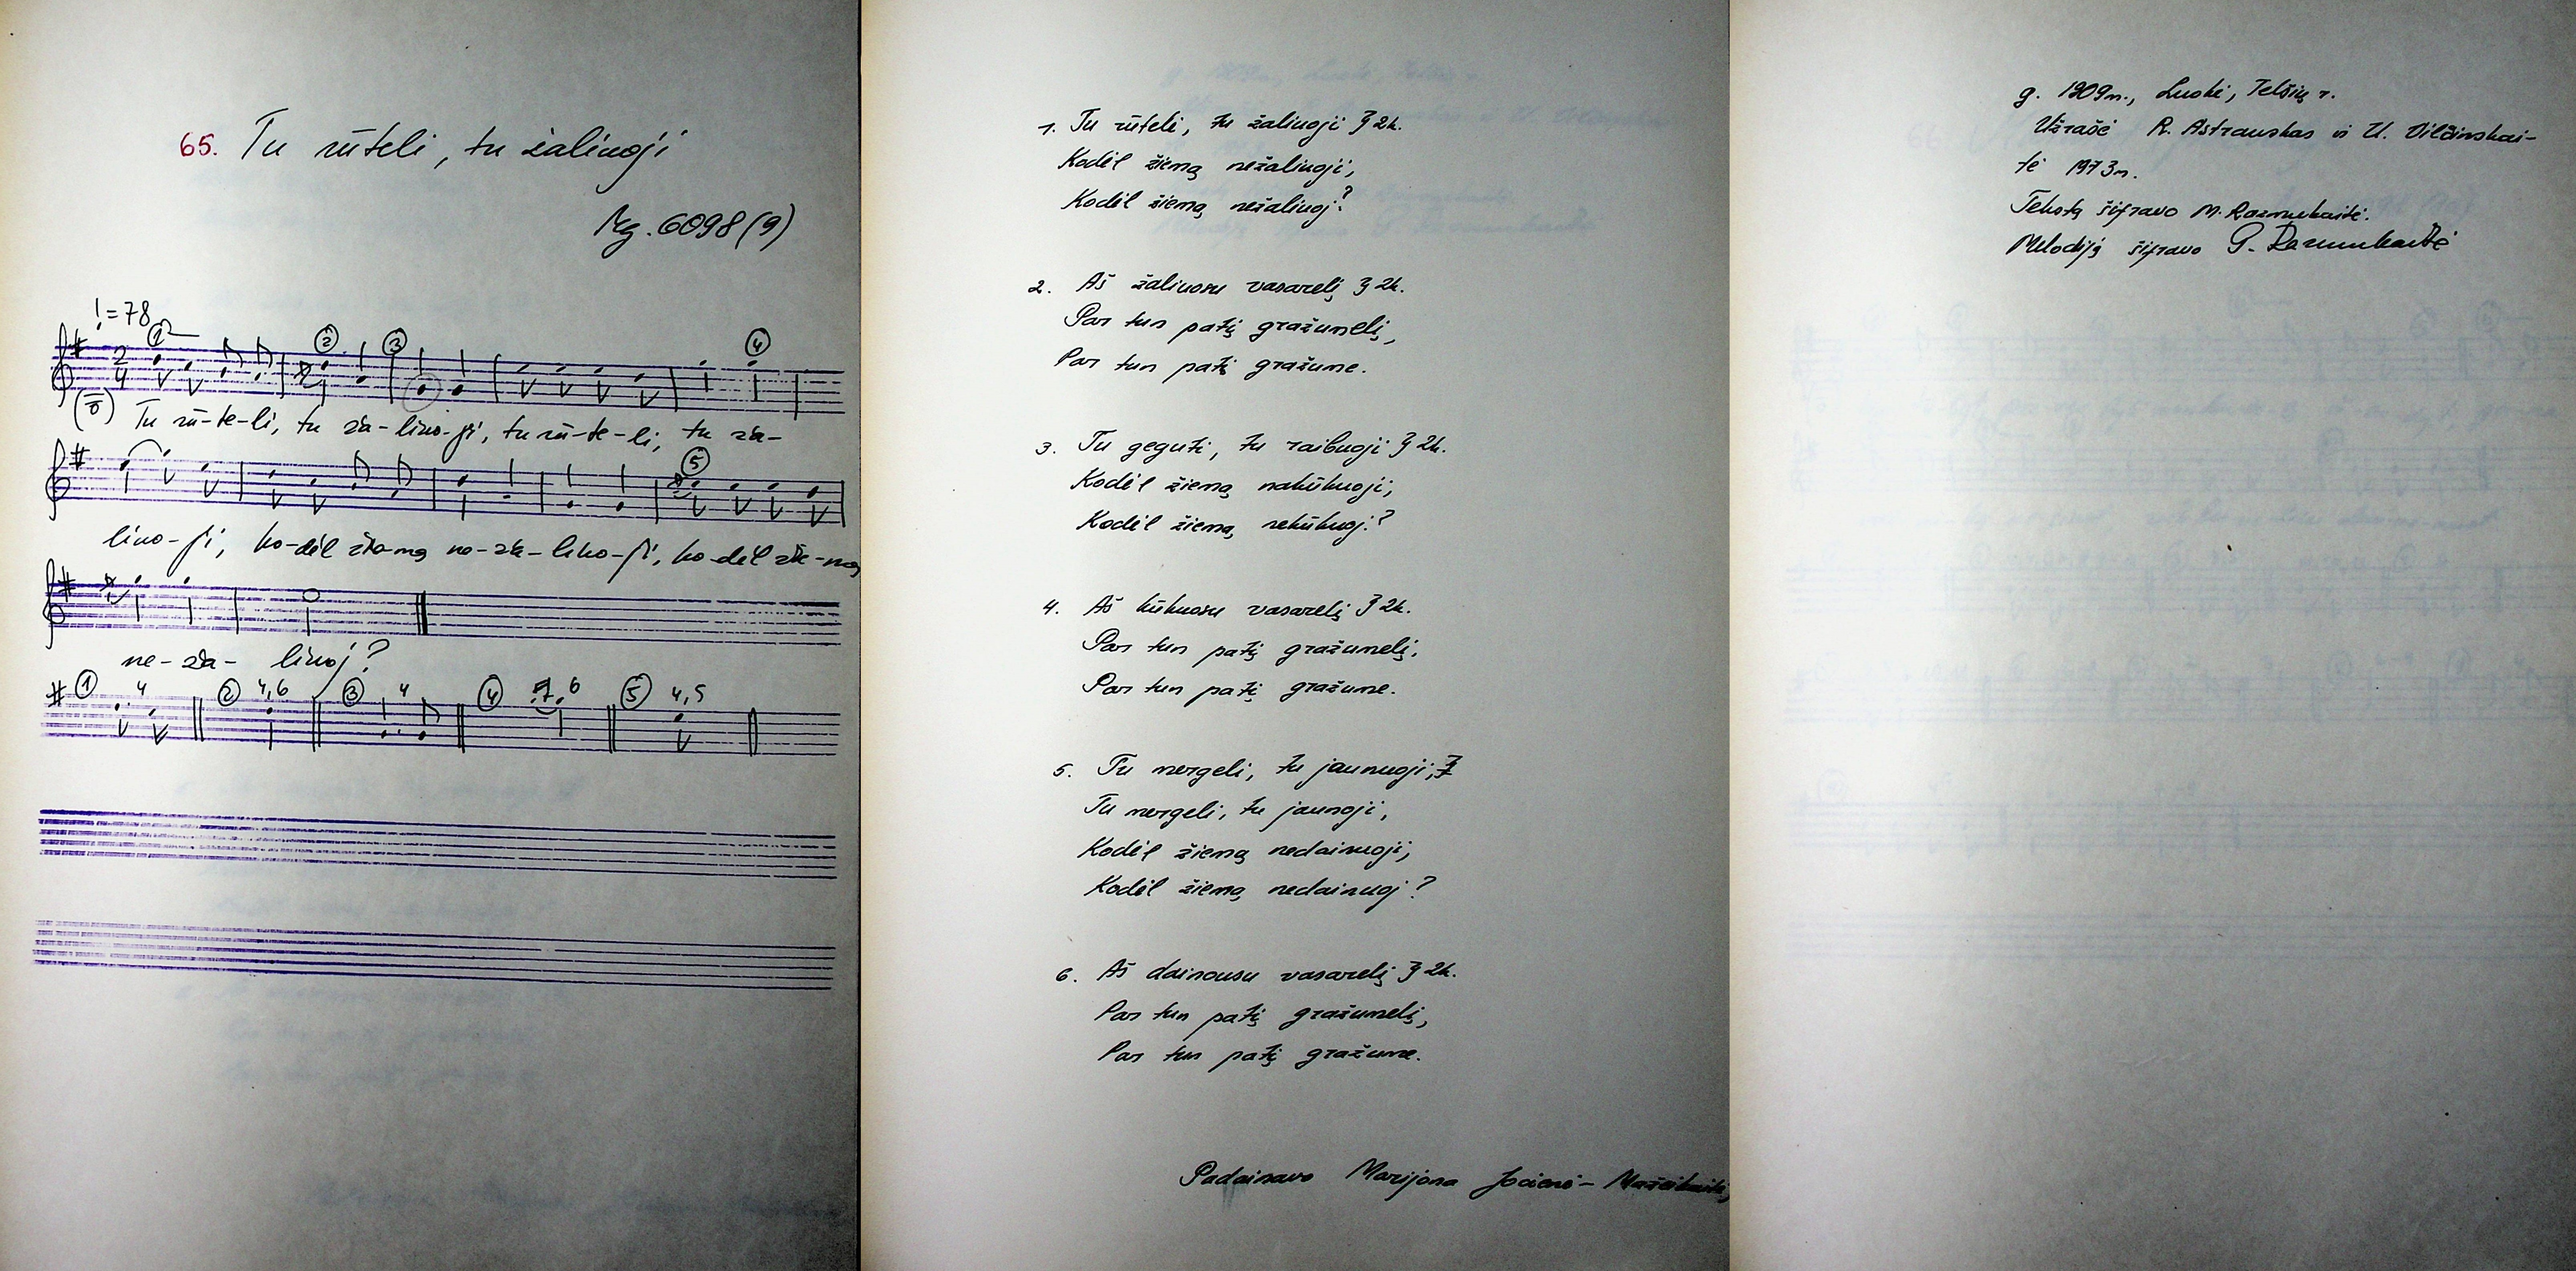 65. Tu rūteli, tu žalinoji
Mg. 6098(9)
♩=78
2/4
Tu rū-te-li, tu ža-lino-ji, tu rū-te-li, tu ža-
lino-ji, ko-dėl žie-mą ne-ža-lino-ji, ko-dėl žie-mą
ne-ža- linoj?
① 4 ② 4,6 ③ 4 ④ 6 ⑤ 4,5
1. Tu rūteli, tu žaliuoji } 2k.
Kodėl žiemą nežaliuoji,
Kodėl žiemą nežaliuoj?
2. Aš žaliuosu vasarelį } 2k.
Par tun patį gražumelį,
Par tun patį gražume.
3. Tu geguti, tu raibuoji } 2k.
Kodėl žiemą nakūkuoji,
Kodėl žiemą nekūkuoj?
4. Aš kūkuosu vasarelį } 2k.
Par tun patį gražumelį,
Par tun patį gražume.
5. Tu mergeli, tu jaunuoji,
Tu mergeli, tu jaunoji,
Kodėl žiemą nedainuoji,
Kodėl žiemą nedainuoj?
6. Aš dainousu vasarelį } 2k.
Par tun patį gražumelį,
Par tun patį gražume.
Padainavo Marijona Jocienė - Mažeikaitė,
g. 1909m., Luokė, Telšių r.
Užrašė R. Astrauskas ir U. Vilčinskai-
tė 1973m.
Tekstą šifravo M. Razmukaitė.
Melodiją šifravo G. Razmukaitė